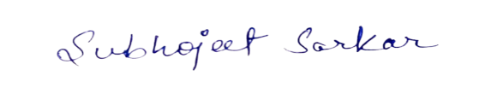 Subhojeet Sarkar